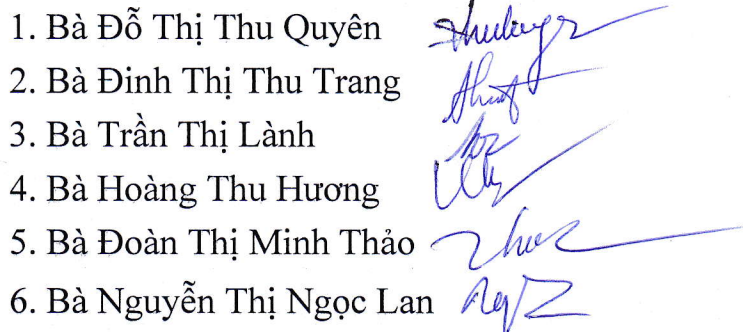 1. Bà Đỗ Thị Thu Quyên
2. Bà Đinh Thị Thu Trang
3. Bà Trần Thị Lành
4. Bà Hoàng Thu Hương
5. Bà Đoàn Thị Minh Thảo
6. Bà Nguyễn Thị Ngọc Lan